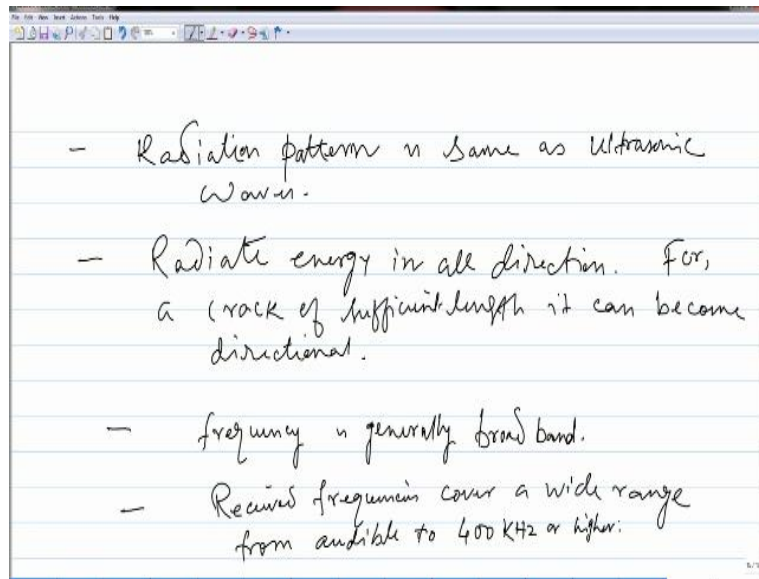 File Edit View Insert Actions Tools Help
- Radiation pattern is same as Ultrasonic
waves.
- Radiate energy in all direction. For,
a crack of sufficient length it can become
directional.
- frequency is generally broad band.
- Received frequencies cover a wide range
from audible to 400 KHz or higher.